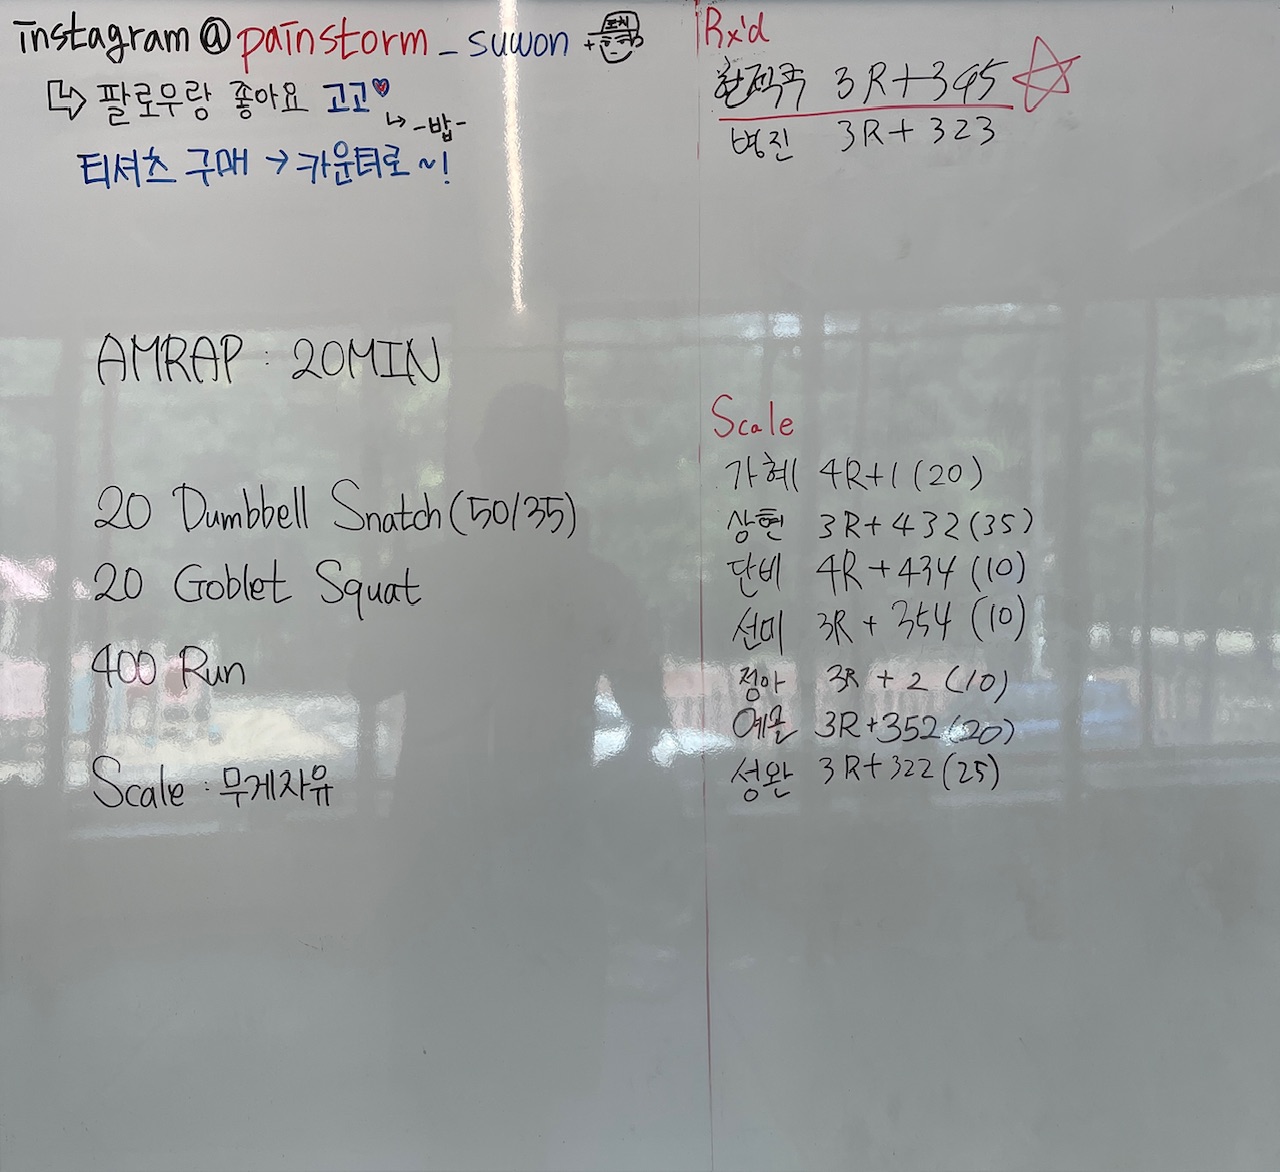 instagram @painstorm_suwon
팔로우랑 좋아요 고고
-밥-
티셔츠 구매 → 카운터로~!
AMRAP : 20MIN
20 Dumbbell Snatch (50/35)
20 Goblet Squat
400 Run
Scale : 무게자유
Rx'd
3R+395
병진 3R+323
Scale
가혜 4R+1 (20)
상현 3R+432 (35)
단비 4R+434 (10)
선미 3R+354 (10)
정아 3R+2 (10)
3R+352 (20)
성완 3R+322 (25)